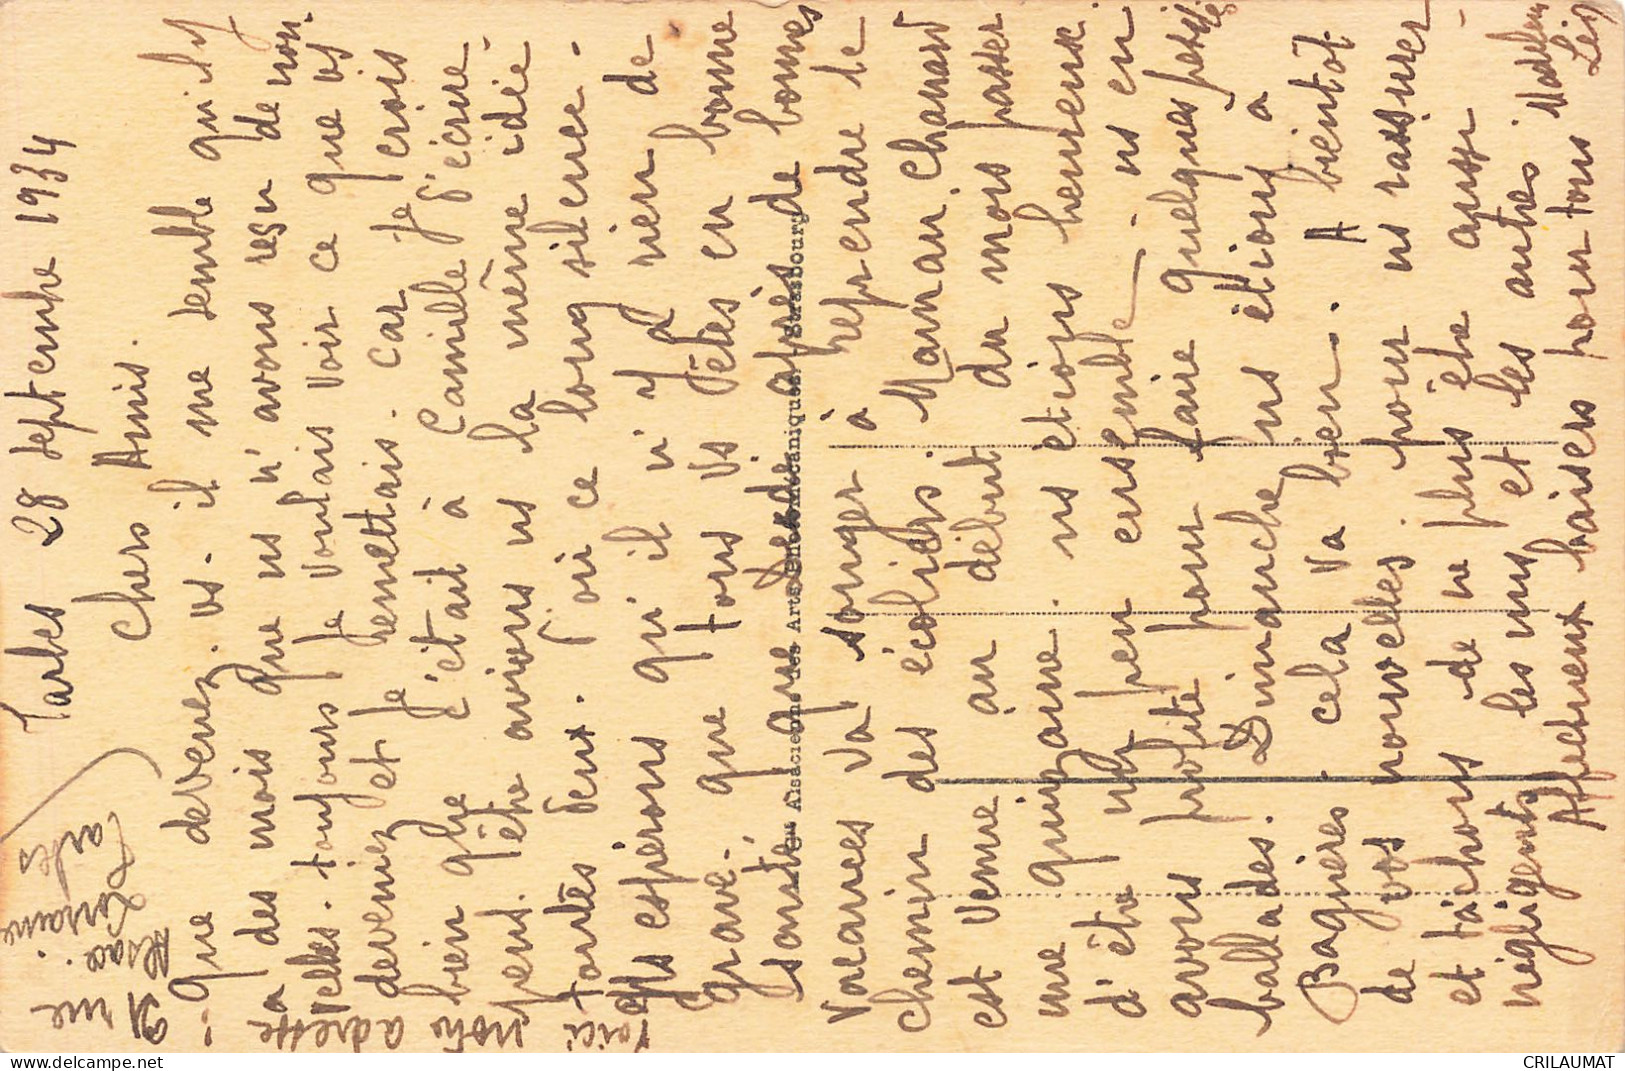 Tarbes 28 septembre 1934
Chers Amis.
que devenez. vs. il me semble qu'il y
a des mois que ns n'avons reçu de nou-
velles. toujours je voulais voir ce que vs
deveniez et je remettais. car je crois
bien que c'était à Camille d'écrire
peut. être avions ns la même idée
toutes deux. d'où ce long silence.
Ns espérons qu'il n'y a rien de
grave. que tous vs êtes en bonne
santé que Dédé après de bonnes
vacances va songer à reprendre le
chemin des écoliers. Maman Chanard
est venue au début du mois passer
une quinzaine. ns étions heureuse
d'être un peu ensemble. ns en
avons profité pour faire quelques petites
ballades. Dimanche ns étions à
Bagnères. cela va bien. A bientôt
de vos nouvelles pour ns rassurer
et tâchons de ne plus être aussi
négligents les uns et les autres
Affectueux baisers pour tous
Madeleine
Léo
Voici
notre adresse
:
21 rue
Alsace.
Lorraine
Tarbes
Cie Alsacienne des Arts Photomécaniques Strasbourg
CRILAUMAT